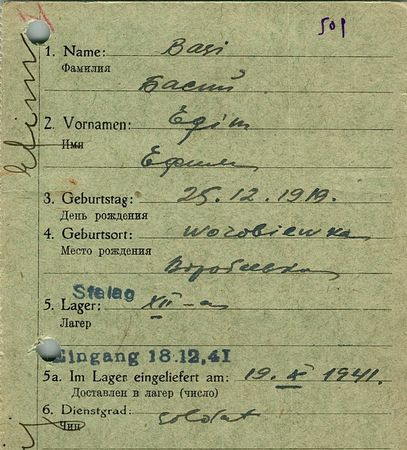 501
1. Name: Basi
Фамилия
Басий
2. Vornamen: Efim
Имя
Ефим
3. Geburtstag: 25.12.1919.
День рождения
4. Geburtsort: Worobiewka
Место рождения
Воробиевка
Stalag
5. Lager: XII-a
Лагерь
Eingang 18.12.41
5a. Im Lager eingeliefert am: 19. X 1941.
Доставлен в лагерь (число)
6. Dienstgrad: Soldat
Чин